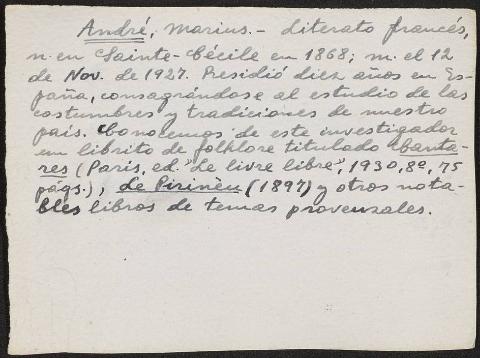 André, Marius.- Literato francés,
n. en Sainte-Cécile en 1868; m. el 12
de Nov. de 1927. Presidió diez años en Es-
paña, consagrándose al estudio de las
costumbres y tradiciones de nuestro
país. Conocemos de este investigador
un librito de folklore titulado Canta-
res (París, ed. "Le livre libre", 1930, 8º, 75
págs.), Le Pirinèu (1897) y otros nota-
bles libros de temas provenzales.